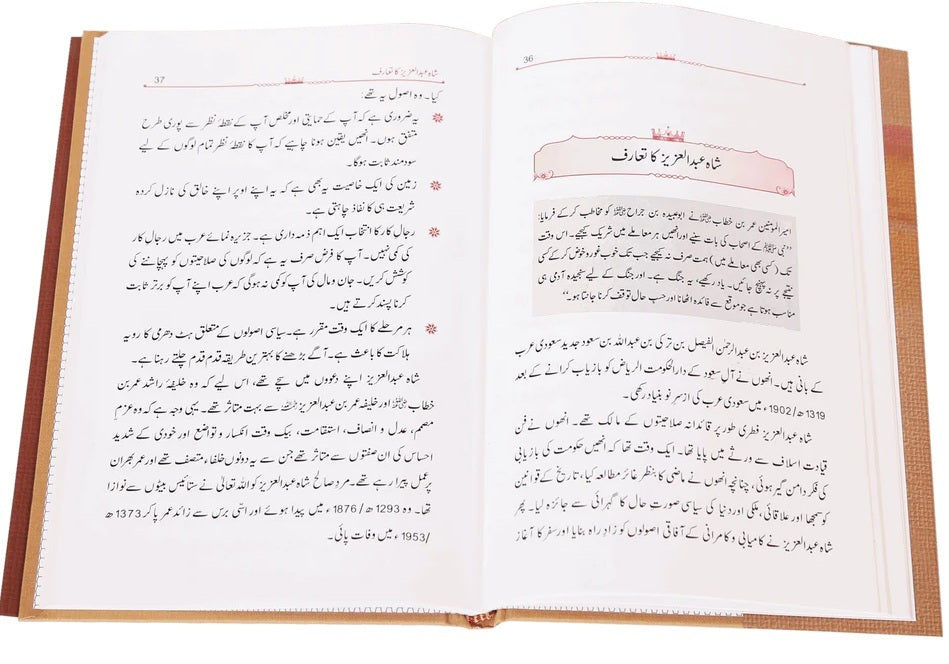 36
شاہ عبدالعزیز کا تعارف
امیر المؤمنین عمر بن خطاب رضی اللہ عنہ نے ابوعبیدہ بن جراح رضی اللہ عنہ کو مخاطب کرکے فرمایا:
’’نبی ﷺ کے اصحاب کی بات سنیے اور انھیں ہر معاملے میں شریک کیجیے۔ اس وقت
تک (کسی بھی معاملے میں) ہمت صرف نہ کیجیے جب تک خوب غور و خوض کرکے کسی
نتیجے پر نہ پہنچ جائیں۔ یاد رکھیے، یہ جنگ ہے۔ اور جنگ کے لیے سنجیدہ آدمی ہی
مناسب ہوتا ہے جو موقع سے فائدہ اٹھانا اور حسب حال توقف کرنا جانتا ہو۔‘‘
شاہ عبدالعزیز بن عبدالرحمٰن الفیصل بن ترکی بن عبداللہ بن سعود جدید سعودی عرب
کے بانی ہیں۔ انھوں نے آلِ سعود کے دارالحکومت الریاض کو بازیاب کرانے کے بعد
1319ھ/1902ء میں سعودی عرب کی ازسرِ نو بنیاد رکھی۔
شاہ عبدالعزیز فطری طور پر قائدانہ صلاحیتوں کے مالک تھے۔ انھوں نے فن
قیادت اسلاف سے ورثے میں پایا تھا۔ ایک وقت تھا کہ انھیں حکومت کی بازیابی
کی فکر دامن گیر ہوئی، چنانچہ انھوں نے ماضی کا بنظر غائر مطالعہ کیا، تاریخ کے قوانین
کو سمجھا اور علاقائی، ملکی اور دنیا کی سیاسی صورتِ حال کا گہرائی سے جائزہ لیا۔ پھر
شاہ عبدالعزیز نے کامیابی و کامرانی کے آفاقی اصولوں کو زادِ راہ بنایا اور سفر کا آغاز
شاہ عبدالعزیز کا تعارف 37
کیا۔ وہ اصول یہ تھے:
یہ ضروری ہے کہ آپ کے حمایتی اور مخلص آپ کے نقطۂ نظر سے پوری طرح
متفق ہوں۔ انھیں یقین ہونا چاہیے کہ آپ کا نقطۂ نظر تمام لوگوں کے لیے
سودمند ثابت ہوگا۔
زمین کی ایک خاصیت یہ بھی ہے کہ یہ اپنے اوپر اپنے خالق کی نازل کردہ
شریعت ہی کا نفاذ چاہتی ہے۔
رجال کار کا انتخاب ایک اہم ذمہ داری ہے۔ جزیرہ نمائے عرب میں رجال کار
کی کمی نہیں۔ آپ کا فرض صرف یہ ہے کہ لوگوں کی صلاحیتوں کو پہچاننے کی
کوشش کریں۔ جان و مال کی آپ کو کمی نہ ہوگی کہ عرب اپنے آپ کو برتر ثابت
کرنا پسند کرتے ہیں۔
ہر مرحلے کا ایک وقت مقرر ہے۔ سیاسی اصولوں کے متعلق ہٹ دھرمی کا رویہ
ہلاکت کا باعث ہے۔ آگے بڑھنے کا بہترین طریقہ قدم قدم چلتے رہنا ہے۔
شاہ عبدالعزیز اپنے دعووں میں سچے تھے، اس لیے کہ وہ خلیفۂ راشد عمر بن
خطاب رضی اللہ عنہ اور خلیفہ عمر بن عبدالعزیز رحمہ اللہ سے بہت متاثر تھے۔ یہی وجہ ہے کہ وہ عزم
مصمم، عدل و انصاف، استقامت، بیک وقت انکسار و تواضع اور خودی کے شدید
احساس کی ان صفتوں سے متاثر تھے جن سے یہ دونوں خلفاء متصف تھے اور عمر بھر ان
پر عمل پیرا رہے تھے۔ مردِ صالح شاہ عبدالعزیز کو اللہ تعالیٰ نے ستائیس بیٹوں سے نوازا
تھا۔ وہ 1293ھ/1876ء میں پیدا ہوئے اور اسّی برس سے زائد عمر پا کر 1373ھ
/1953ء میں وفات پائی۔